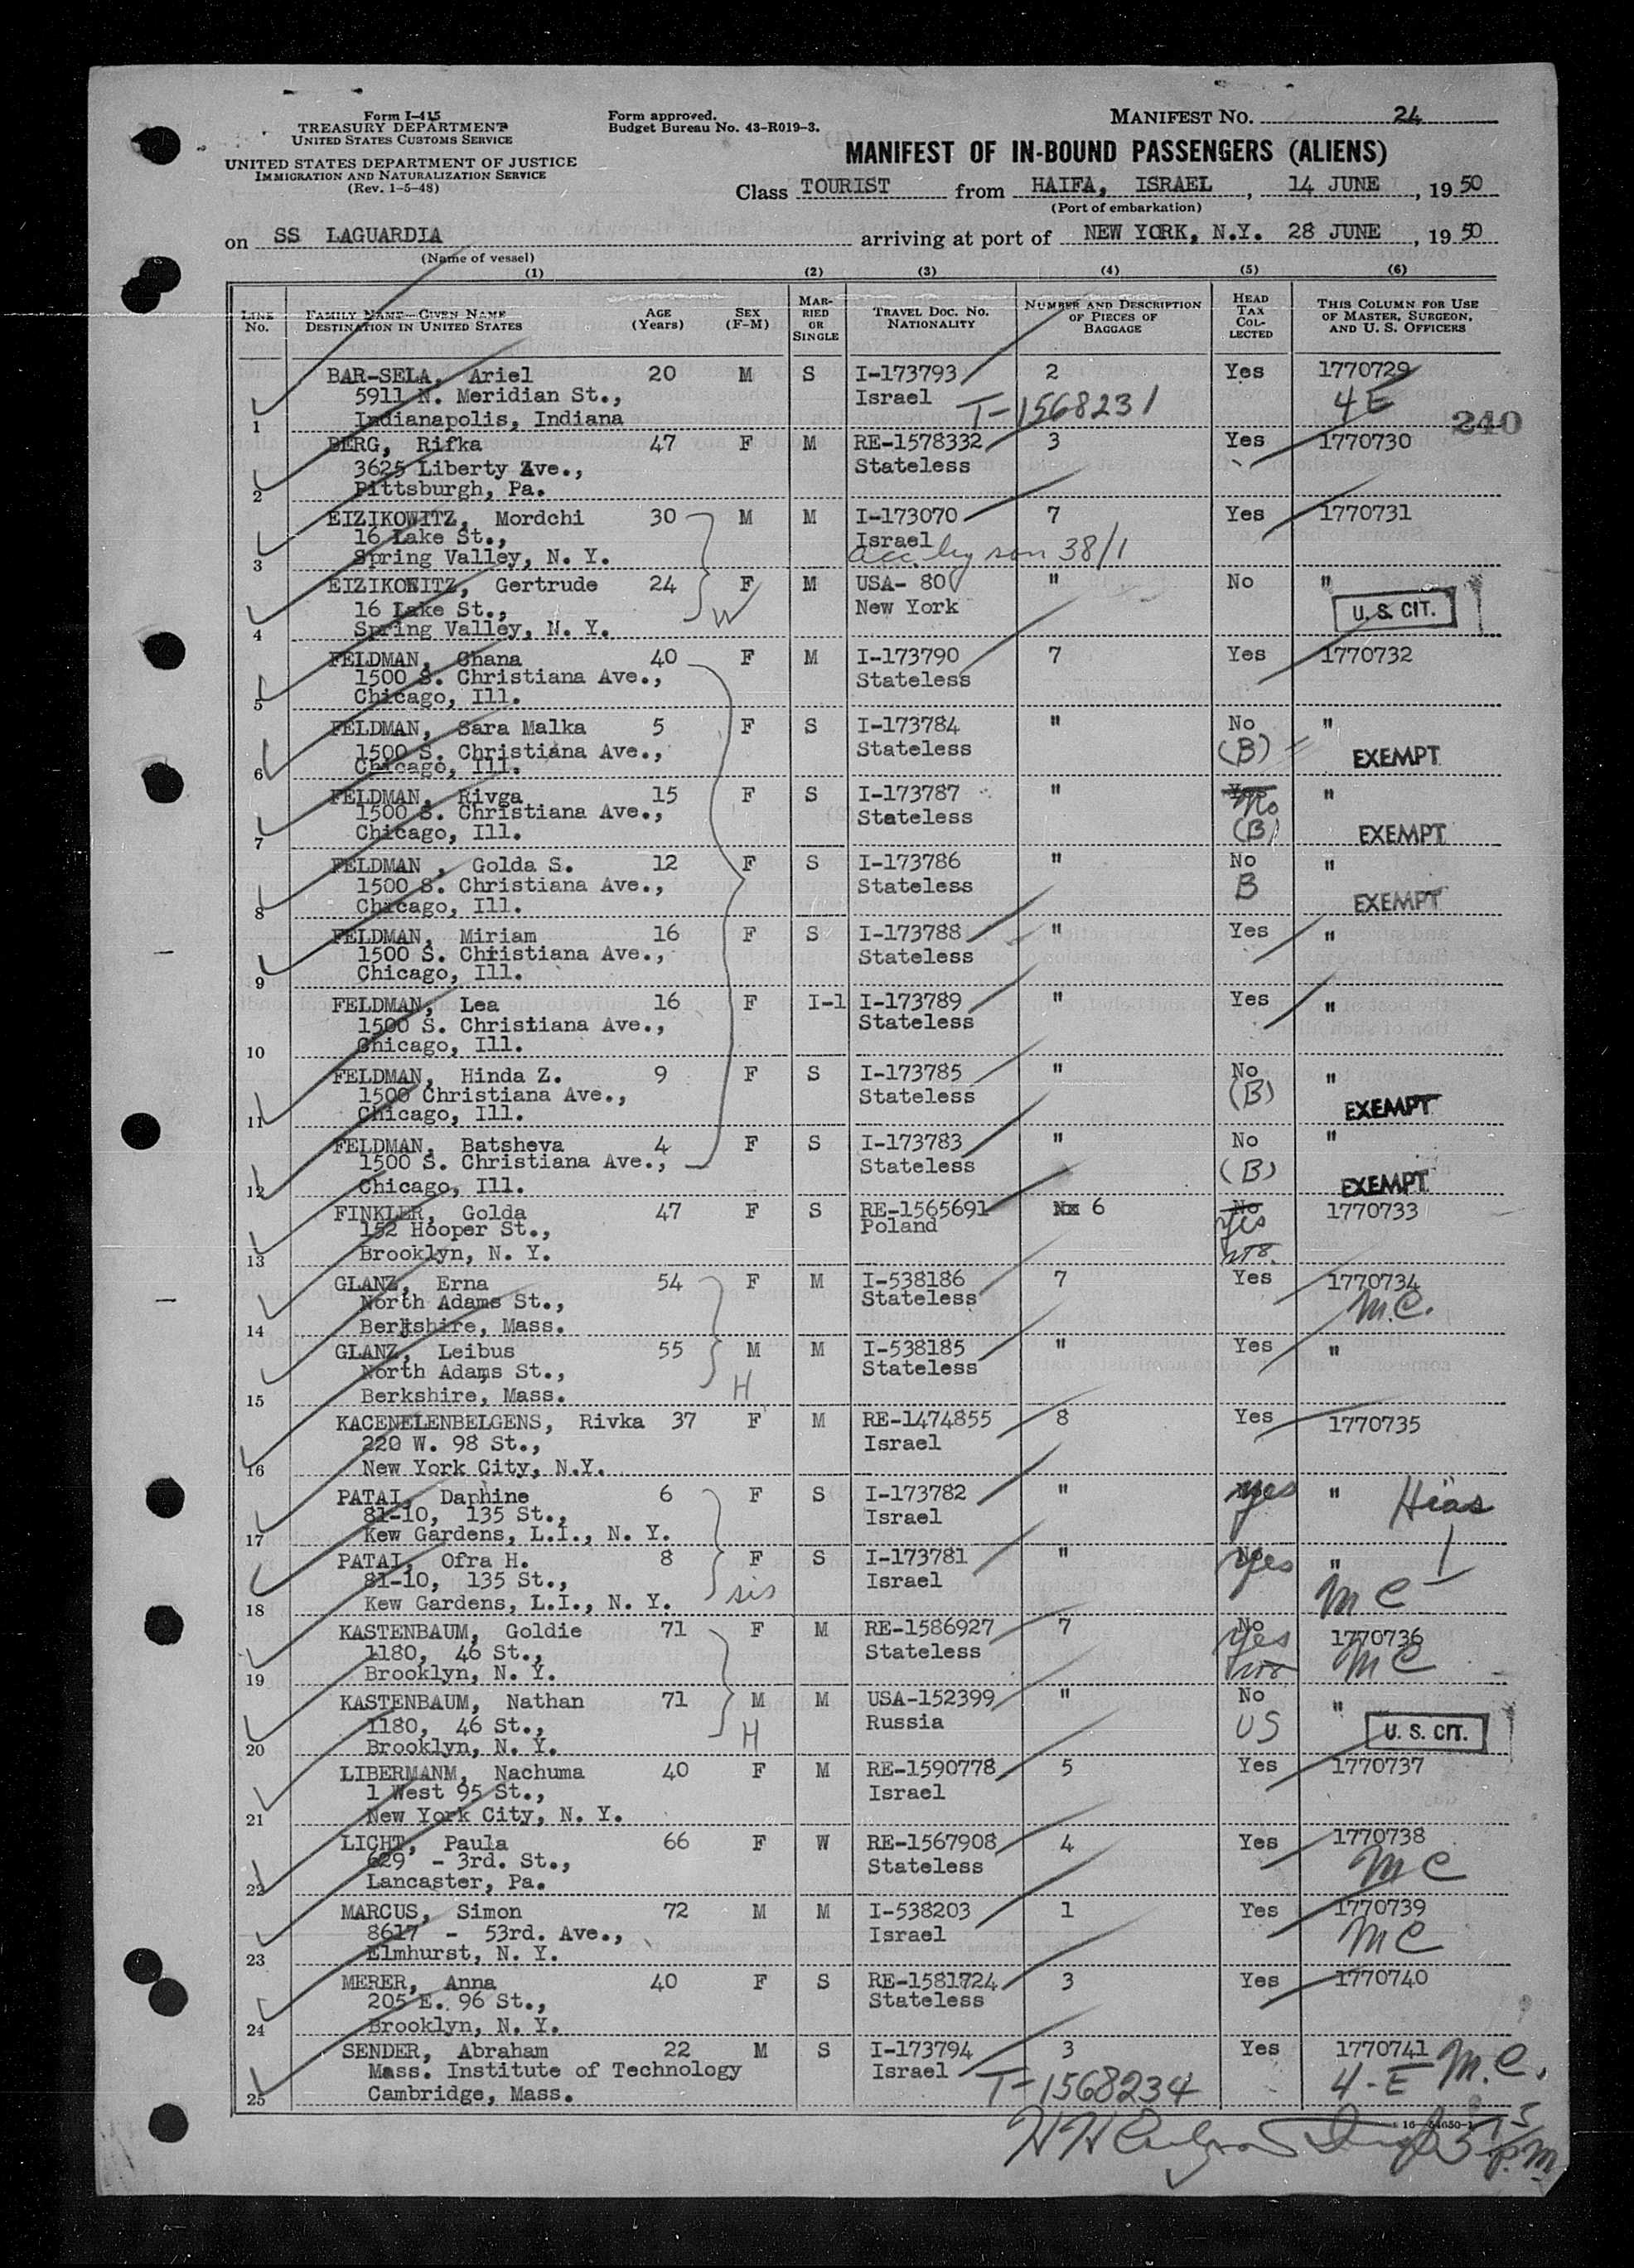 Form I-415
TREASURY DEPARTMENT
UNITED STATES CUSTOMS SERVICE
UNITED STATES DEPARTMENT OF JUSTICE
IMMIGRATION AND NATURALIZATION SERVICE
(Rev. 1-5-48)
Form approved.
Budget Bureau No. 43-R019-3.
MANIFEST NO. 24
MANIFEST OF IN-BOUND PASSENGERS (ALIENS)
Class TOURIST from HAIFA, ISRAEL, 14 JUNE, 1950
(Port of embarkation)
on SS LAGUARDIA arriving at port of NEW YORK, N.Y. 28 JUNE, 1950
(Name of vessel)
(1) (2) (3) (4) (5) (6)
LINE No. FAMILY NAME—GIVEN NAME DESTINATION IN UNITED STATES AGE (Years) SEX (F-M) MARRIED OR SINGLE TRAVEL DOC. NO. NATIONALITY NUMBER AND DESCRIPTION OF PIECES OF BAGGAGE HEAD TAX COLLECTED THIS COLUMN FOR USE OF MASTER, SURGEON, AND U. S. OFFICERS
BAR-SELA, Ariel 20 M S I-173793 2 Yes 1770729
5911 N. Meridian St., Israel T-1568231 4E
1 Indianapolis, Indiana
240
BERG, Rifka 47 F M RE-1578332 3 Yes 1770730
3625 Liberty Ave., Stateless
2 Pittsburgh, Pa.
EIZIKOWITZ, Mordchi 30 M M I-173070 7 Yes 1770731
16 Lake St., Israel
3 Spring Valley, N. Y. acc. by son 38/1
EIZIKOWITZ, Gertrude 24 F M USA- 80 " No "
16 Lake St., W New York U. S. CIT.
4 Spring Valley, N. Y.
FELDMAN, Chana 40 F M I-173790 7 Yes 1770732
1500 S. Christiana Ave., Stateless
5 Chicago, Ill.
FELDMAN, Sara Malka 5 F S I-173784 " No "
1500 S. Christiana Ave., Stateless (B) EXEMPT
6 Chicago, Ill.
FELDMAN, Rivga 15 F S I-173787 " Yes No "
1500 S. Christiana Ave., Stateless (B) EXEMPT
7 Chicago, Ill.
FELDMAN , Golda S. 12 F S I-173786 " No "
1500 S. Christiana Ave., Stateless B EXEMPT
8 Chicago, Ill.
FELDMAN, Miriam 16 F S I-173788 " Yes "
1500 S. Christiana Ave., Stateless
9 Chicago, Ill.
FELDMAN, Lea 16 F I-1 I-173789 " Yes "
1500 S. Christiana Ave., Stateless
10 Chicago, Ill.
FELDMAN, Hinda Z. 9 F S I-173785 " No "
1500 Christiana Ave., Stateless (B) EXEMPT
11 Chicago, Ill.
FELDMAN, Batsheva 4 F S I-173783 " No "
1500 S. Christiana Ave., Stateless (B) EXEMPT
12 Chicago, Ill.
FINKLER, Golda 47 F S RE-1565691 6 No yes 1770733
152 Hooper St., Poland
13 Brooklyn, N. Y.
GLANZ, Erna 54 F M I-538186 7 Yes 1770734
North Adams St., Stateless M.C.
14 Berkshire, Mass.
GLANZ, Leibus 55 M M I-538185 " Yes "
North Adams St., H Stateless
15 Berkshire, Mass.
KACENELENBELGENS, Rivka 37 F M RE-1474855 8 Yes 1770735
220 W. 98 St., Israel
16 New York City, N.Y.
PATAI, Daphine 6 F S I-173782 " yes " Hias
81-10, 135 St., Israel
17 Kew Gardens, L.I., N. Y.
PATAI, Ofra H. 8 F S I-173781 " yes "
81-10, 135 St., sis Israel MC
18 Kew Gardens, L.I., N. Y.
KASTENBAUM, Goldie 71 F M RE-1586927 7 No yes 1770736
1180, 46 St., Stateless MC
19 Brooklyn, N. Y.
KASTENBAUM, Nathan 71 M M USA-152399 " No "
1180, 46 St., H Russia US U. S. CIT.
20 Brooklyn, N. Y.
LIBERMANM, Nachuma 40 F M RE-1590778 5 Yes 1770737
1 West 95 St., Israel
21 New York City, N. Y.
LICHT, Paula 66 F W RE-1567908 4 Yes 1770738
629 - 3rd. St., Stateless MC
22 Lancaster, Pa.
MARCUS, Simon 72 M M I-538203 1 Yes 1770739
8617 - 53rd. Ave., Israel MC
23 Elmhurst, N. Y.
MERER, Anna 40 F S RE-1581724 3 Yes 1770740
205 E. 96 St., Stateless
24 Brooklyn, N. Y.
SENDER, Abraham 22 M S I-173794 3 Yes 1770741 M.C.
Mass. Institute of Technology Israel T-1568234 4-E
25 Cambridge, Mass.